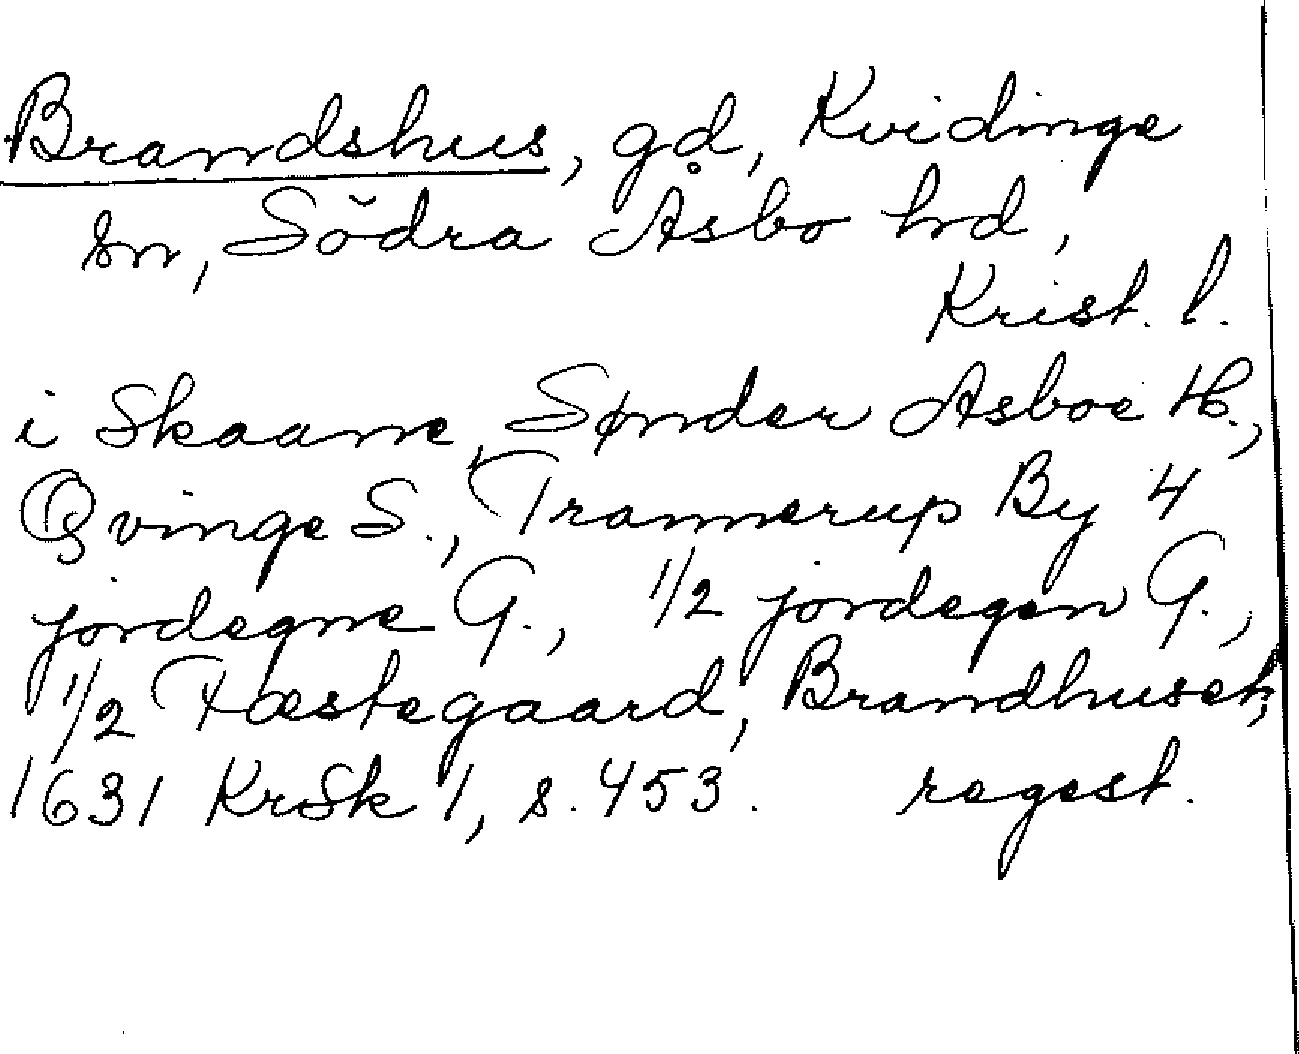 Brandshus, gd, Kvidinge
sn, Södra Åsbo hd,
Krist. l.
i Skaane, Sønder Asboe H.,
Qvinge S., Trannerup By 4
jordegne G., 1/2 jordegen G.,
1/2 Fæstegaard, Brandhuset,
1631 KrSk 1, s. 453. regest.